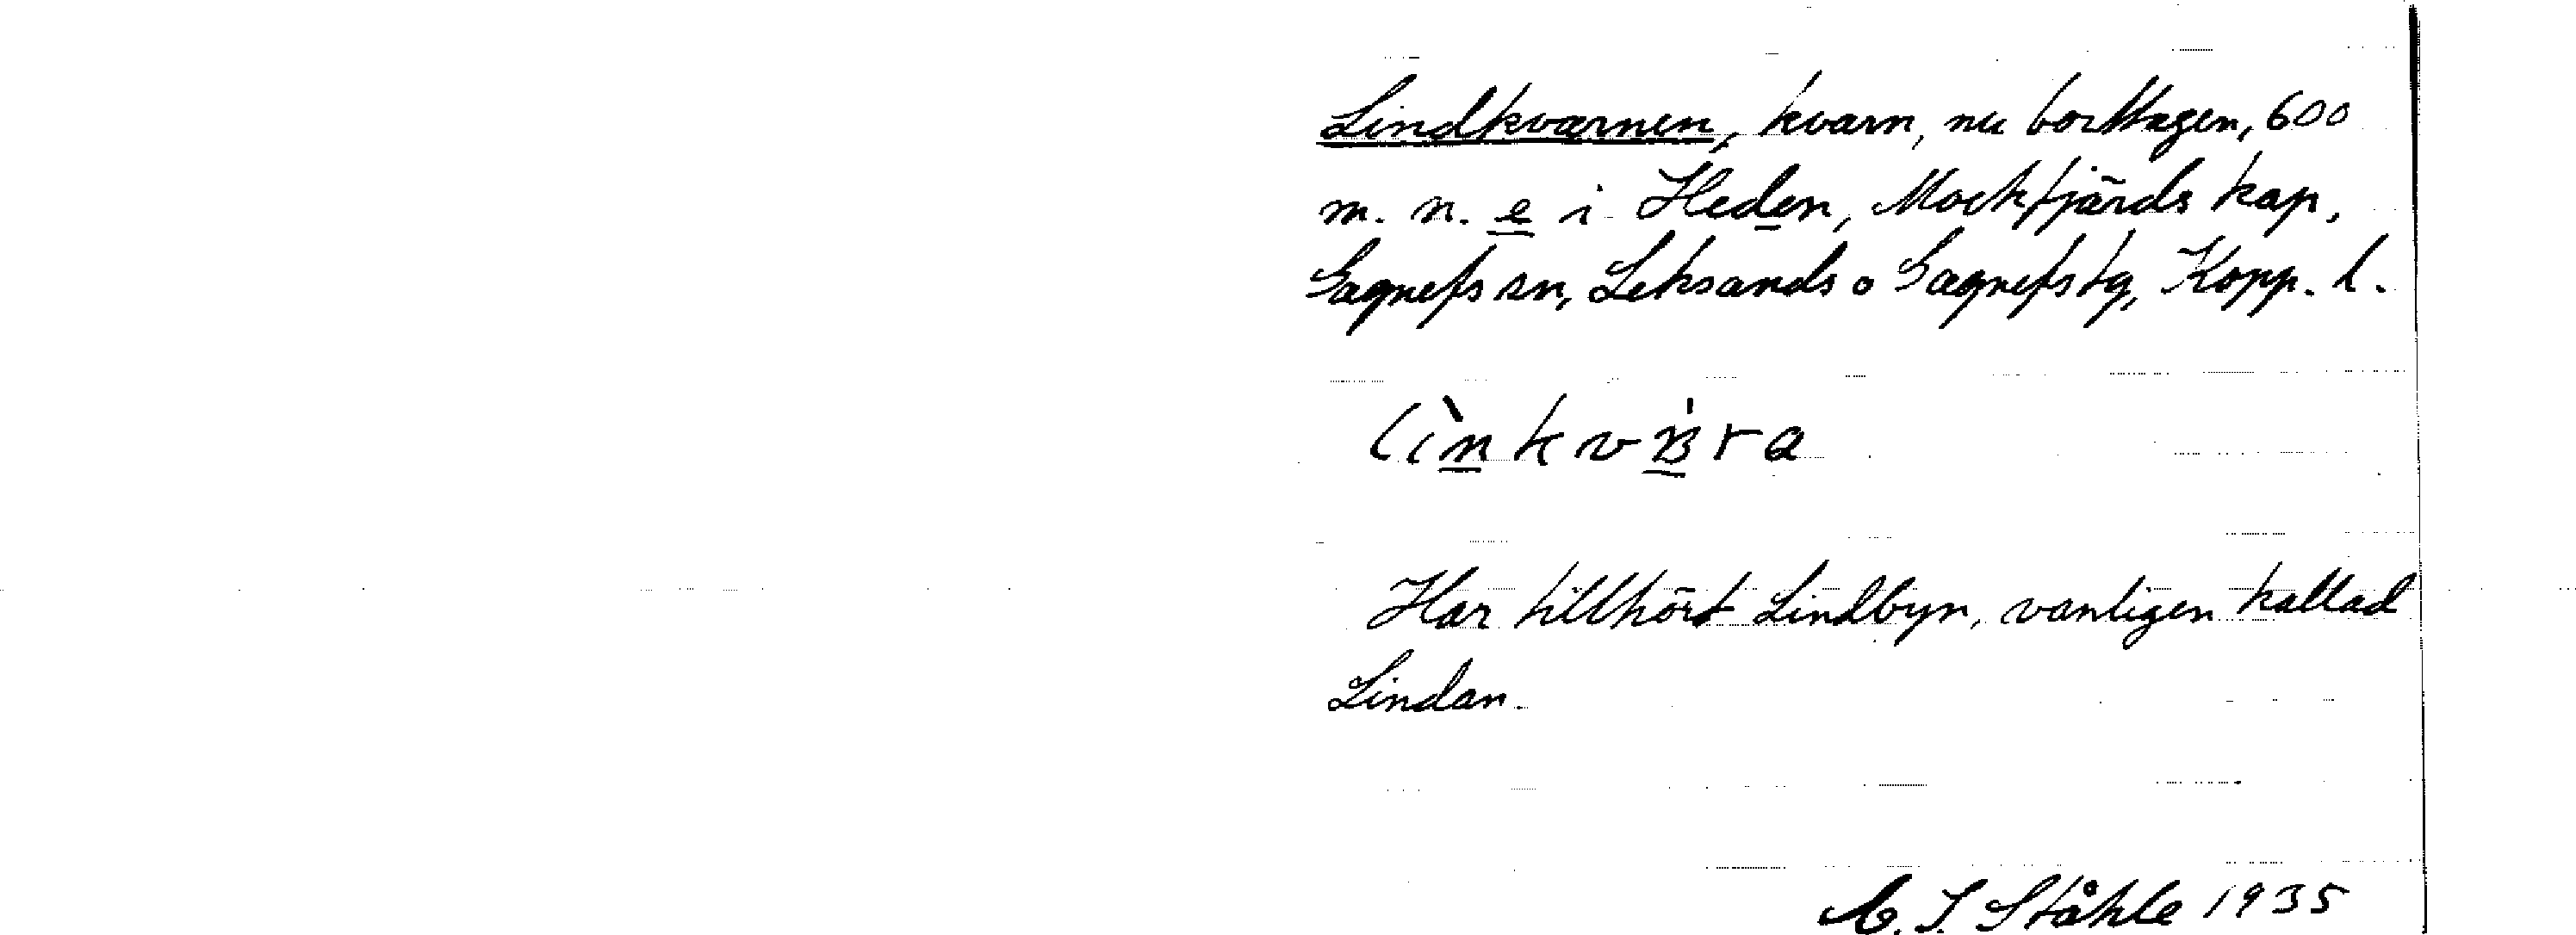 Lindkvarnen, kvarn, nu borttagen, 600
m. n. e i Heden, Mockfjärds kap,
Gagnefs sn, Leksands o Gagnefs tg, Kopp. l.
Har tillhört Lindbyn, vanligen kallad
Lindan.
C. I. Ståhle 1935